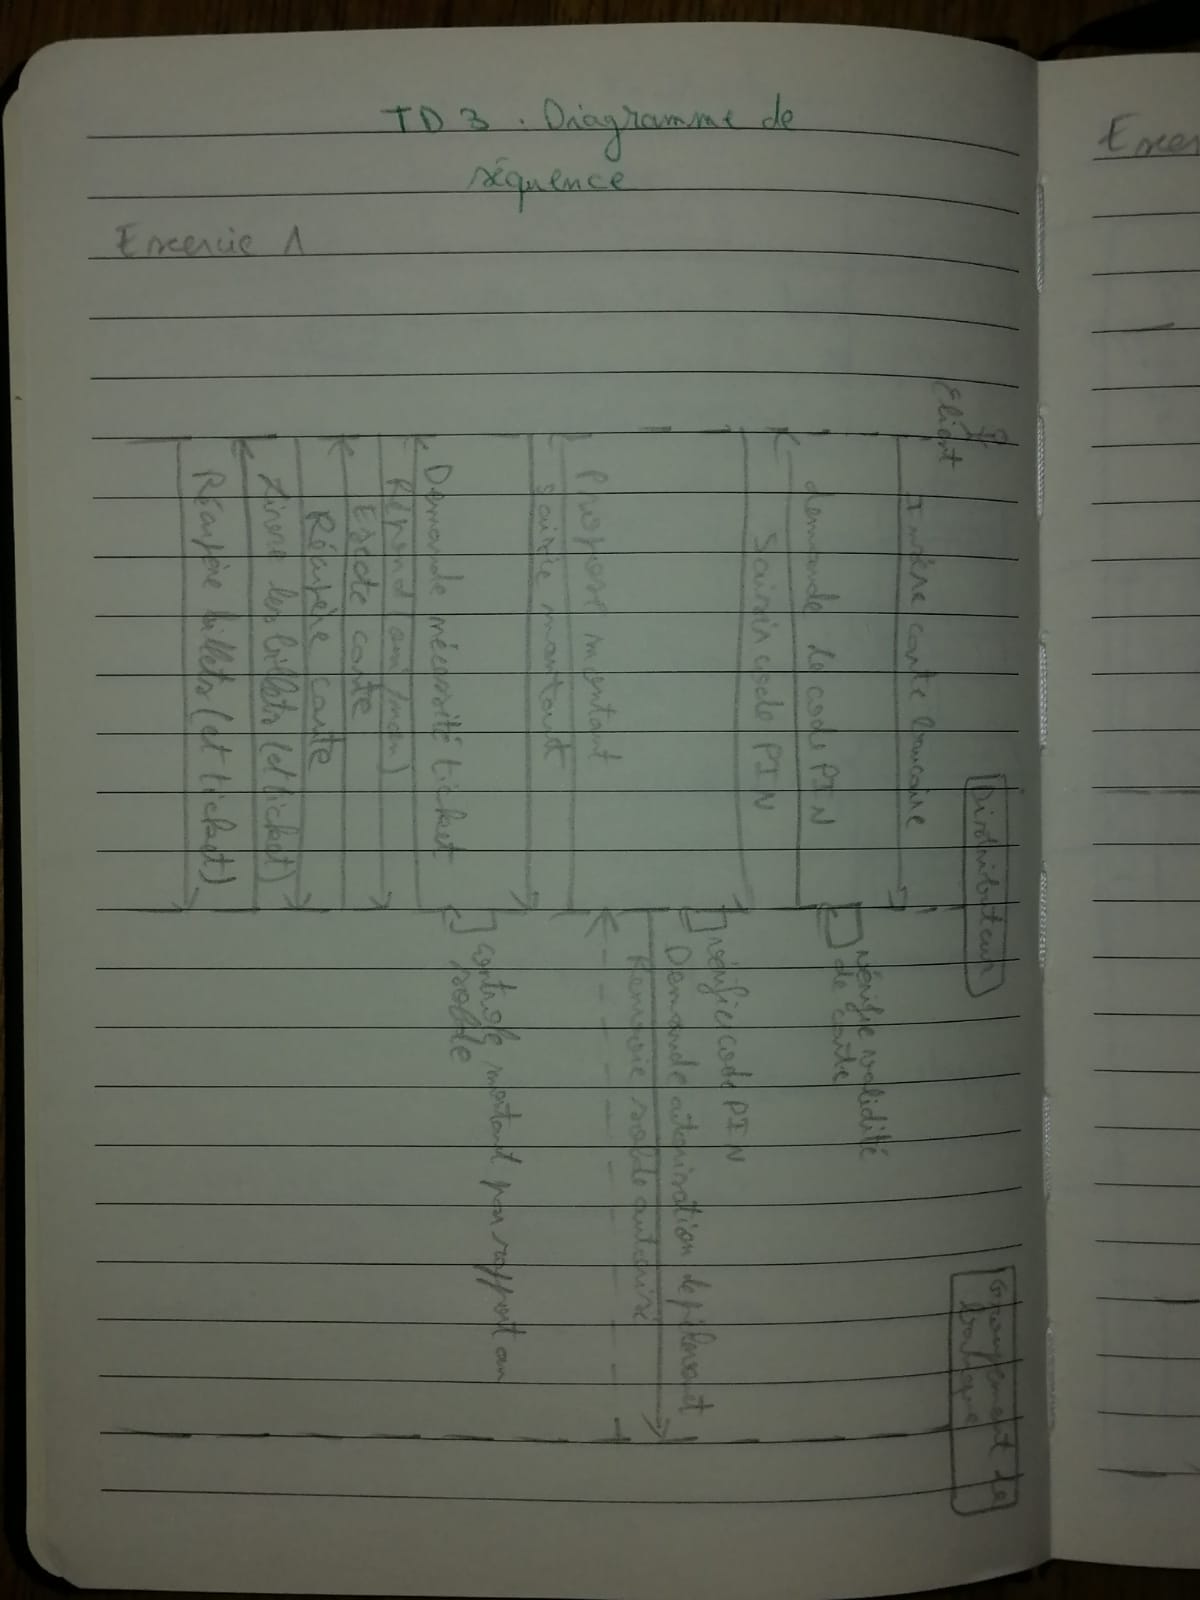 TD 3 . Diagramme de
séquence
Exercice 1
Client
Distributeur
Groupement de
banque
Insère carte bancaire
Vérifie validité
de carte
demande le code PIN
Saisin code PIN
vérifier code PIN
Demande autorisation de prélèvement
Renvoie solde autorisé
Propose montant
saisie montant
contrôle montant par rapport au
solde
Demande nécessité ticket
Répond (oui/non)
Ejecte carte
Récupère carte
Livre les billets (et ticket)
Récupère billets (et ticket)
Exer